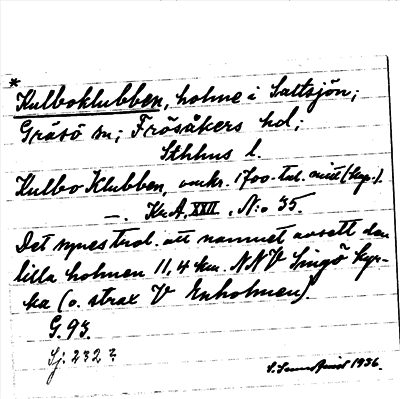 *
Kulboklubben, holme i Saltsjön;
Gräsö sn; Frösåkers hd;
Sthlms l.
Kulbo Klubben, omkr. 1700-tal. mitt (kop.).
—. Kr.A. XXII, N:o 35.
Det synes trol. att namnet avsett den
lilla holmen 11,4 km. NNV Singö kyr-
ka (o. strax V Enholmen).
G. 93.
Sj: 232?
1936.